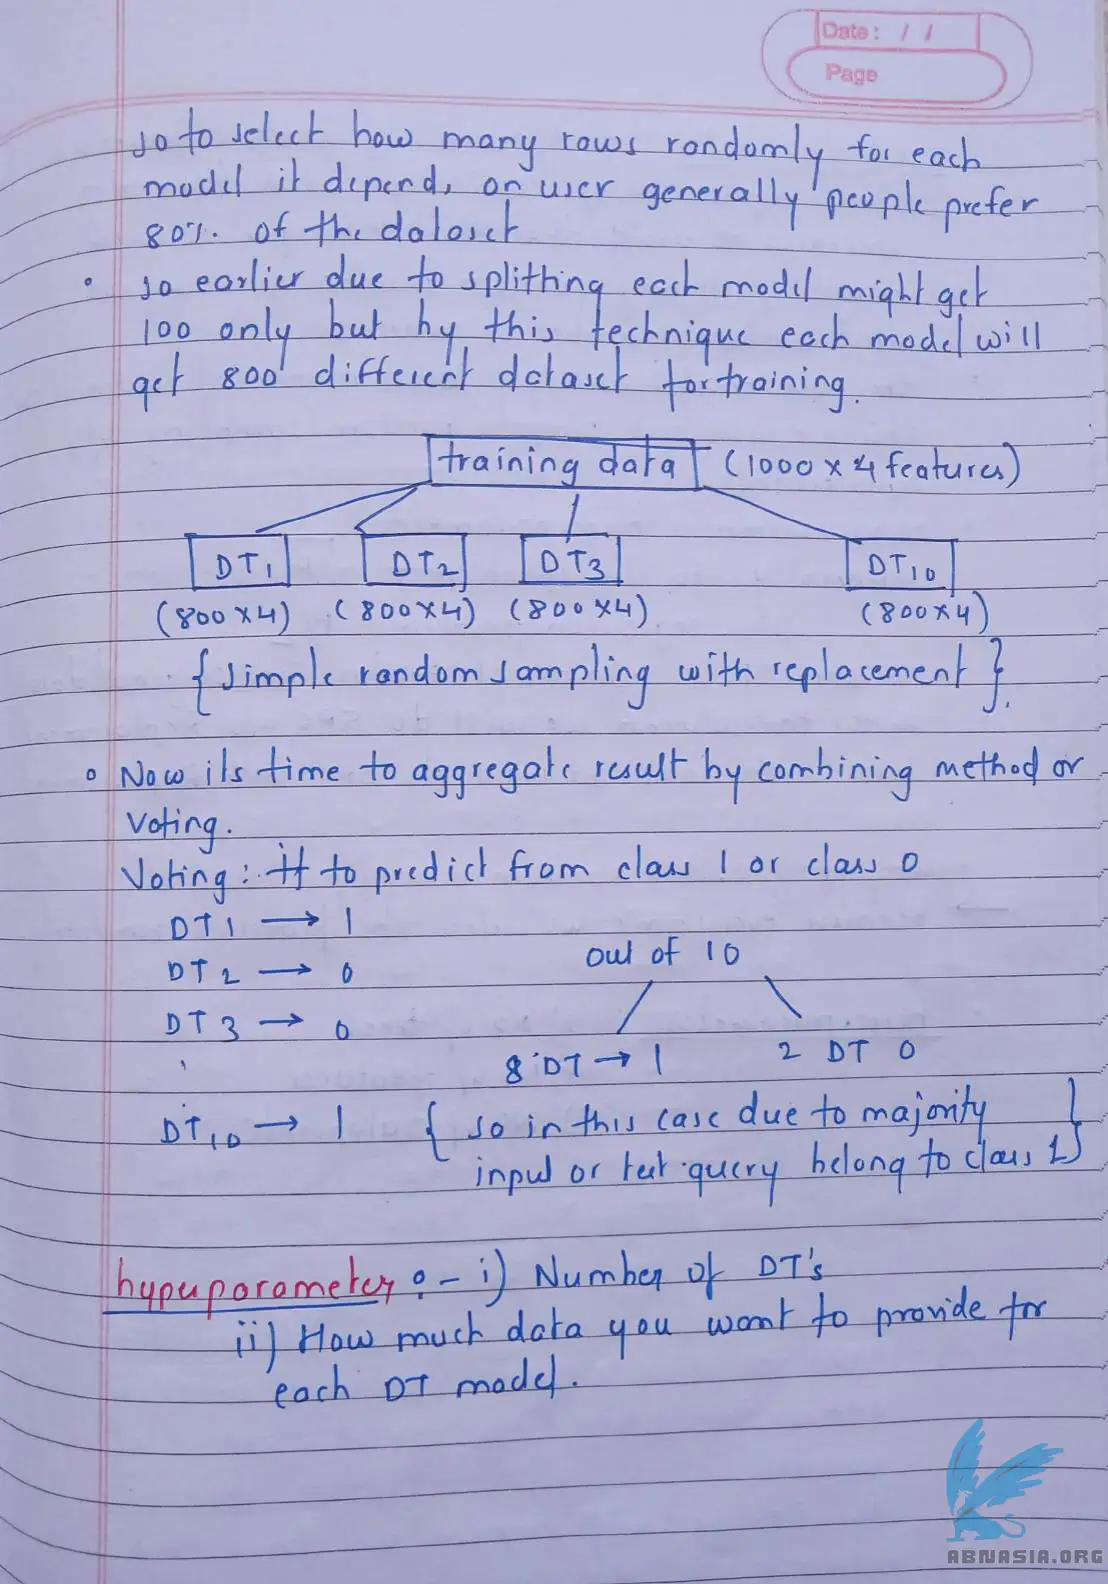 Date : / /
Page
so to select how many rows randomly for each
model it depends on user generally people prefer
80%. of the dataset
• so earlier due to splitting each model might get
100 only but by this technique each model will
get 800 different dataset for training.
training data (1000 x 4 features)
DT1 DT2 DT3 DT10
(800 x 4) (800 x 4) (800 x 4) (800 x 4)
{ simple random sampling with replacement }.
• Now its time to aggregate result by combining method or
Voting.
Voting : It to predict from class 1 or class 0
DT1 → 1
out of 10
DT2 → 0
DT3 → 0
8 DT → 1 2 DT 0
DT10 → 1 { so in this case due to majority
input or test query belong to class 1 }
hyperparameter : - i) Number of DT's
ii) How much data you want to provide for
each DT model.
ABNASIA.ORG